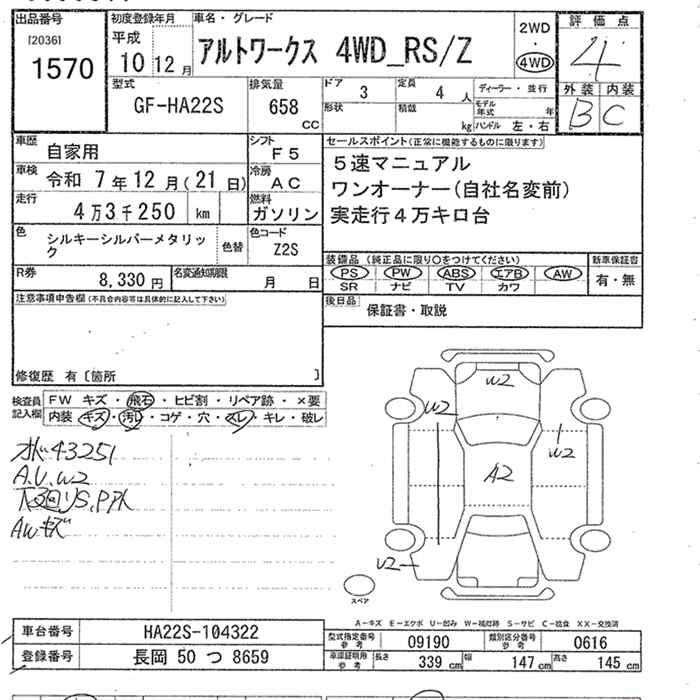 出品番号
[2036]
1570
初度登録年月
平成
10年12月
車名・グレード
アルトワークス 4WD_RS/Z
2WD
・
4WD
評価点
4
外装 内装
B C
型式
GF-HA22S
排気量
658
CC
ドア 3
定員 4人
形状
積載 kg
ディーラー・並行
モデル年式 年
ハンドル 左・右
車歴
自家用
シフト
F5
車検
令和 7年12月(21日)
冷房
AC
走行
4万3千250 km
燃料
ガソリン
色
シルキーシルバーメタリック
色替
色コード
Z2S
R券
8,330円
名変通知期限
月 日
セールスポイント(正常に機能するものに限ります)
5速マニュアル
ワンオーナー(自社名変前)
実走行4万キロ台
装備品 (純正品に限り○をつけてください)
PS PW ABS エアB AW
SR ナビ TV カワ
新車保証書
有・無
後日品
保証書・取説
注意事項申告欄(不具合内容等は具体的に記入して下さい)
修復歴 有〔箇所 〕
検査員記入欄
FW キズ・飛石・ヒビ割・リペア跡・×要
内装 キズ・汚れ・コゲ・穴・スレ・キレ・破レ
43251
A.U.W2
AWキズ
W2
W2
W2
A2
U2
スペア
A－キズ E－エクボ U－凹み W－補修跡 S－サビ C－腐食 XX－交換済
車台番号
HA22S-104322
登録番号
長岡 50 つ 8659
型式指定番号
参考
09190
類別区分番号
参考
0616
車庫証明用
参考
長さ 339 cm
幅 147 cm
高さ 145 cm